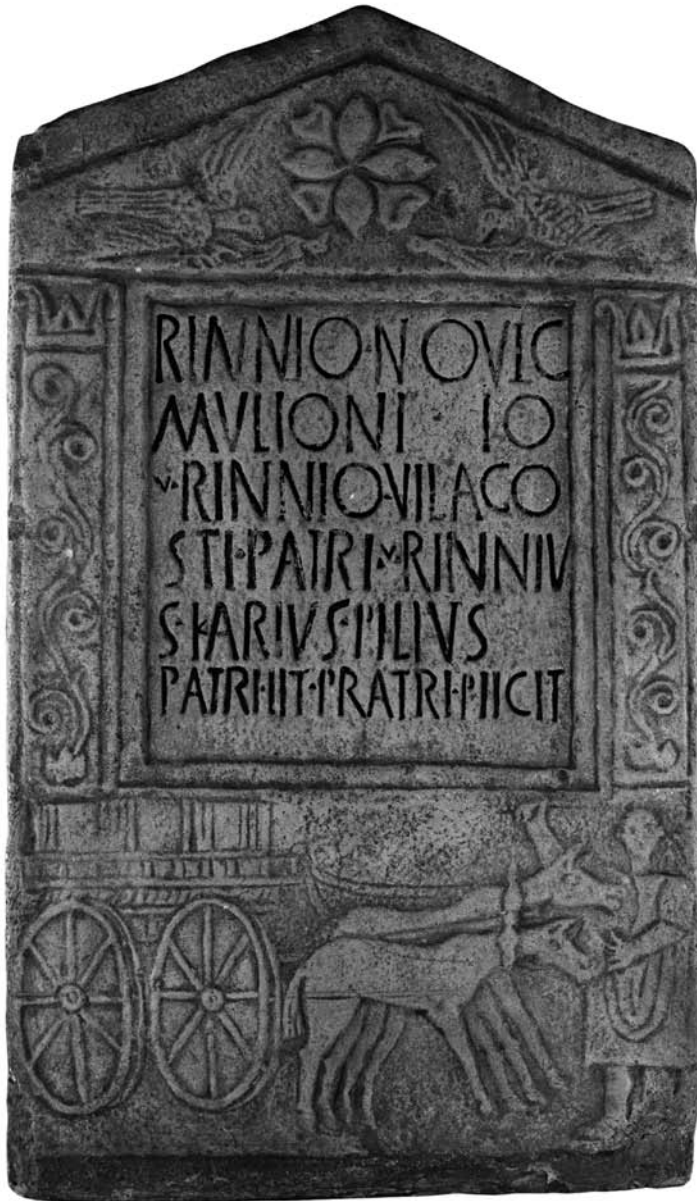 RINNIO·NOVIC
MVLIONI IO
V·RINNIO·VILAGO
STI·PATRI·V·RINNIV
S·KARIVS·FILIVS
PATRI·IIT·FRATRI·FIICIT